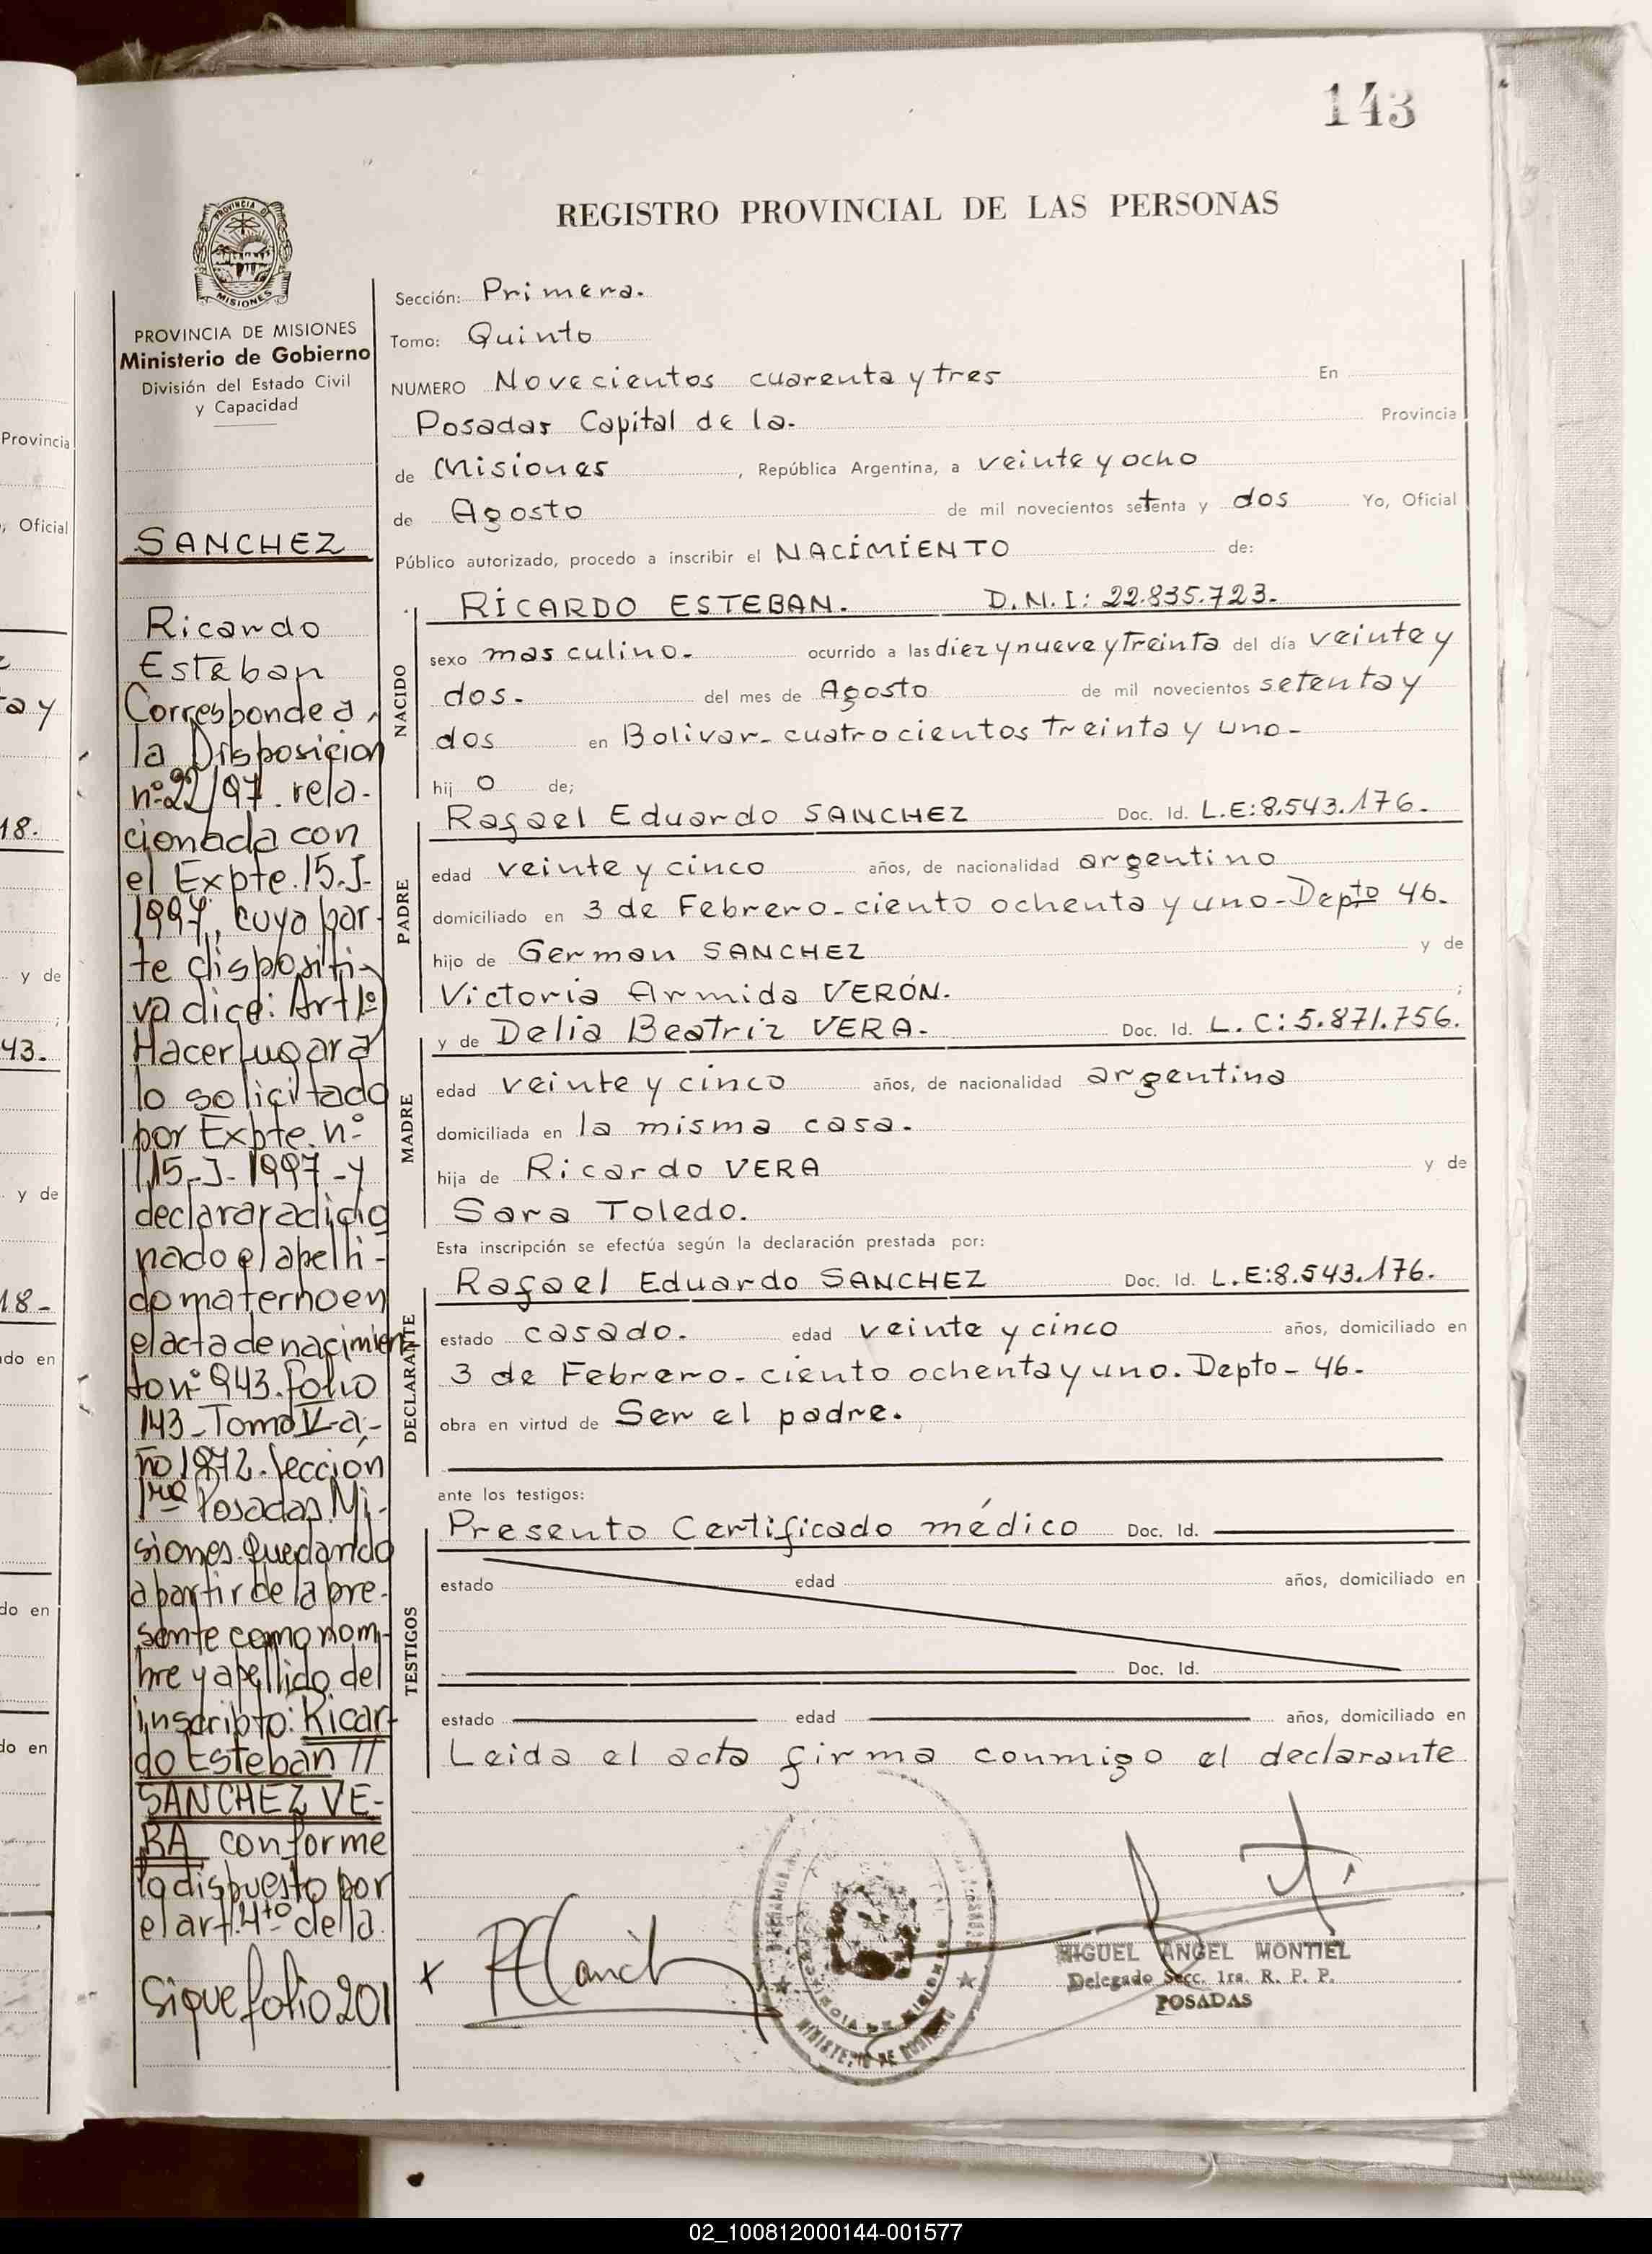 143
REGISTRO PROVINCIAL DE LAS PERSONAS
PROVINCIA DE
MISIONES
PROVINCIA DE MISIONES
Ministerio de Gobierno
División del Estado Civil
y Capacidad
SANCHEZ
Ricardo
Esteban
Corresponde a
la Disposicion
nº 22/97. rela-
cionada con
el Expte. 15.J-
1997, cuya par-
te dispositi-
va dice: Art 1º)
Hacer lugar a
lo solicitado
por Expte. nº
15-J-1997-y
declarar adicio
nado el apelli-
do materno en
el acta de nacimien-
to nº 943. Folio
143-Tomo V-a-
ño 1972. Sección
1ra Posadas. Mi-
siones. Quedando
a partir de la pre-
sente como nom-
bre y apellido del
inscripto: Ricar-
do Esteban //
SANCHEZ VE-
RA conforme
lo dispuesto por
el art. 4to de la
Sigue folio 201
Sección: Primera.
Tomo: Quinto
NUMERO Novecientos cuarenta y tres En
Posadas Capital de la- Provincia
de Misiones , República Argentina, a veinte y ocho
de Agosto de mil novecientos setenta y dos Yo, Oficial
Público autorizado, procedo a inscribir el NACIMIENTO de:
RICARDO ESTEBAN. D.N.I: 22.835.723.
NACIDO
sexo masculino- ocurrido a las diez y nueve y Treinta del día veinte y
dos. del mes de Agosto de mil novecientos setenta y
dos en Bolivar- cuatrocientos Treinta y uno-
hij o de;
Rafael Eduardo SANCHEZ Doc. Id. L.E:8.543.176.
PADRE
edad veinte y cinco años, de nacionalidad argentino
domiciliado en 3 de Febrero-ciento ochenta y uno-Depto 46.
hijo de German SANCHEZ y de
Victoria Armida VERÓN. ;
y de Delia Beatriz VERA- Doc. Id. L.C:5.871.756.
MADRE
edad veinte y cinco años, de nacionalidad argentina
domiciliada en la misma casa.
hija de Ricardo VERA y de
Sara Toledo.
Esta inscripción se efectúa según la declaración prestada por:
Rafael Eduardo SANCHEZ Doc. Id. L.E:8.543.176.
DECLARANTE
estado casado. edad veinte y cinco años, domiciliado en
3 de Febrero-ciento ochenta y uno. Depto-46.
obra en virtud de Ser el padre.
ante los testigos:
Presento Certificado médico Doc. Id.
TESTIGOS
estado edad años, domiciliado en
Doc. Id.
estado edad años, domiciliado en
Leida el acta firma conmigo el declarante
x
MINISTERIO DE GOBIERNO
PROVINCIA DE MISIONES
MIGUEL ANGEL MONTIEL
Delegado Secc. 1ra. R. P. P.
POSADAS
Provincia
, Oficial
ta y
18.
y de
;
43.
y de
18-
do en
do en
do en
02_100812000144-001577